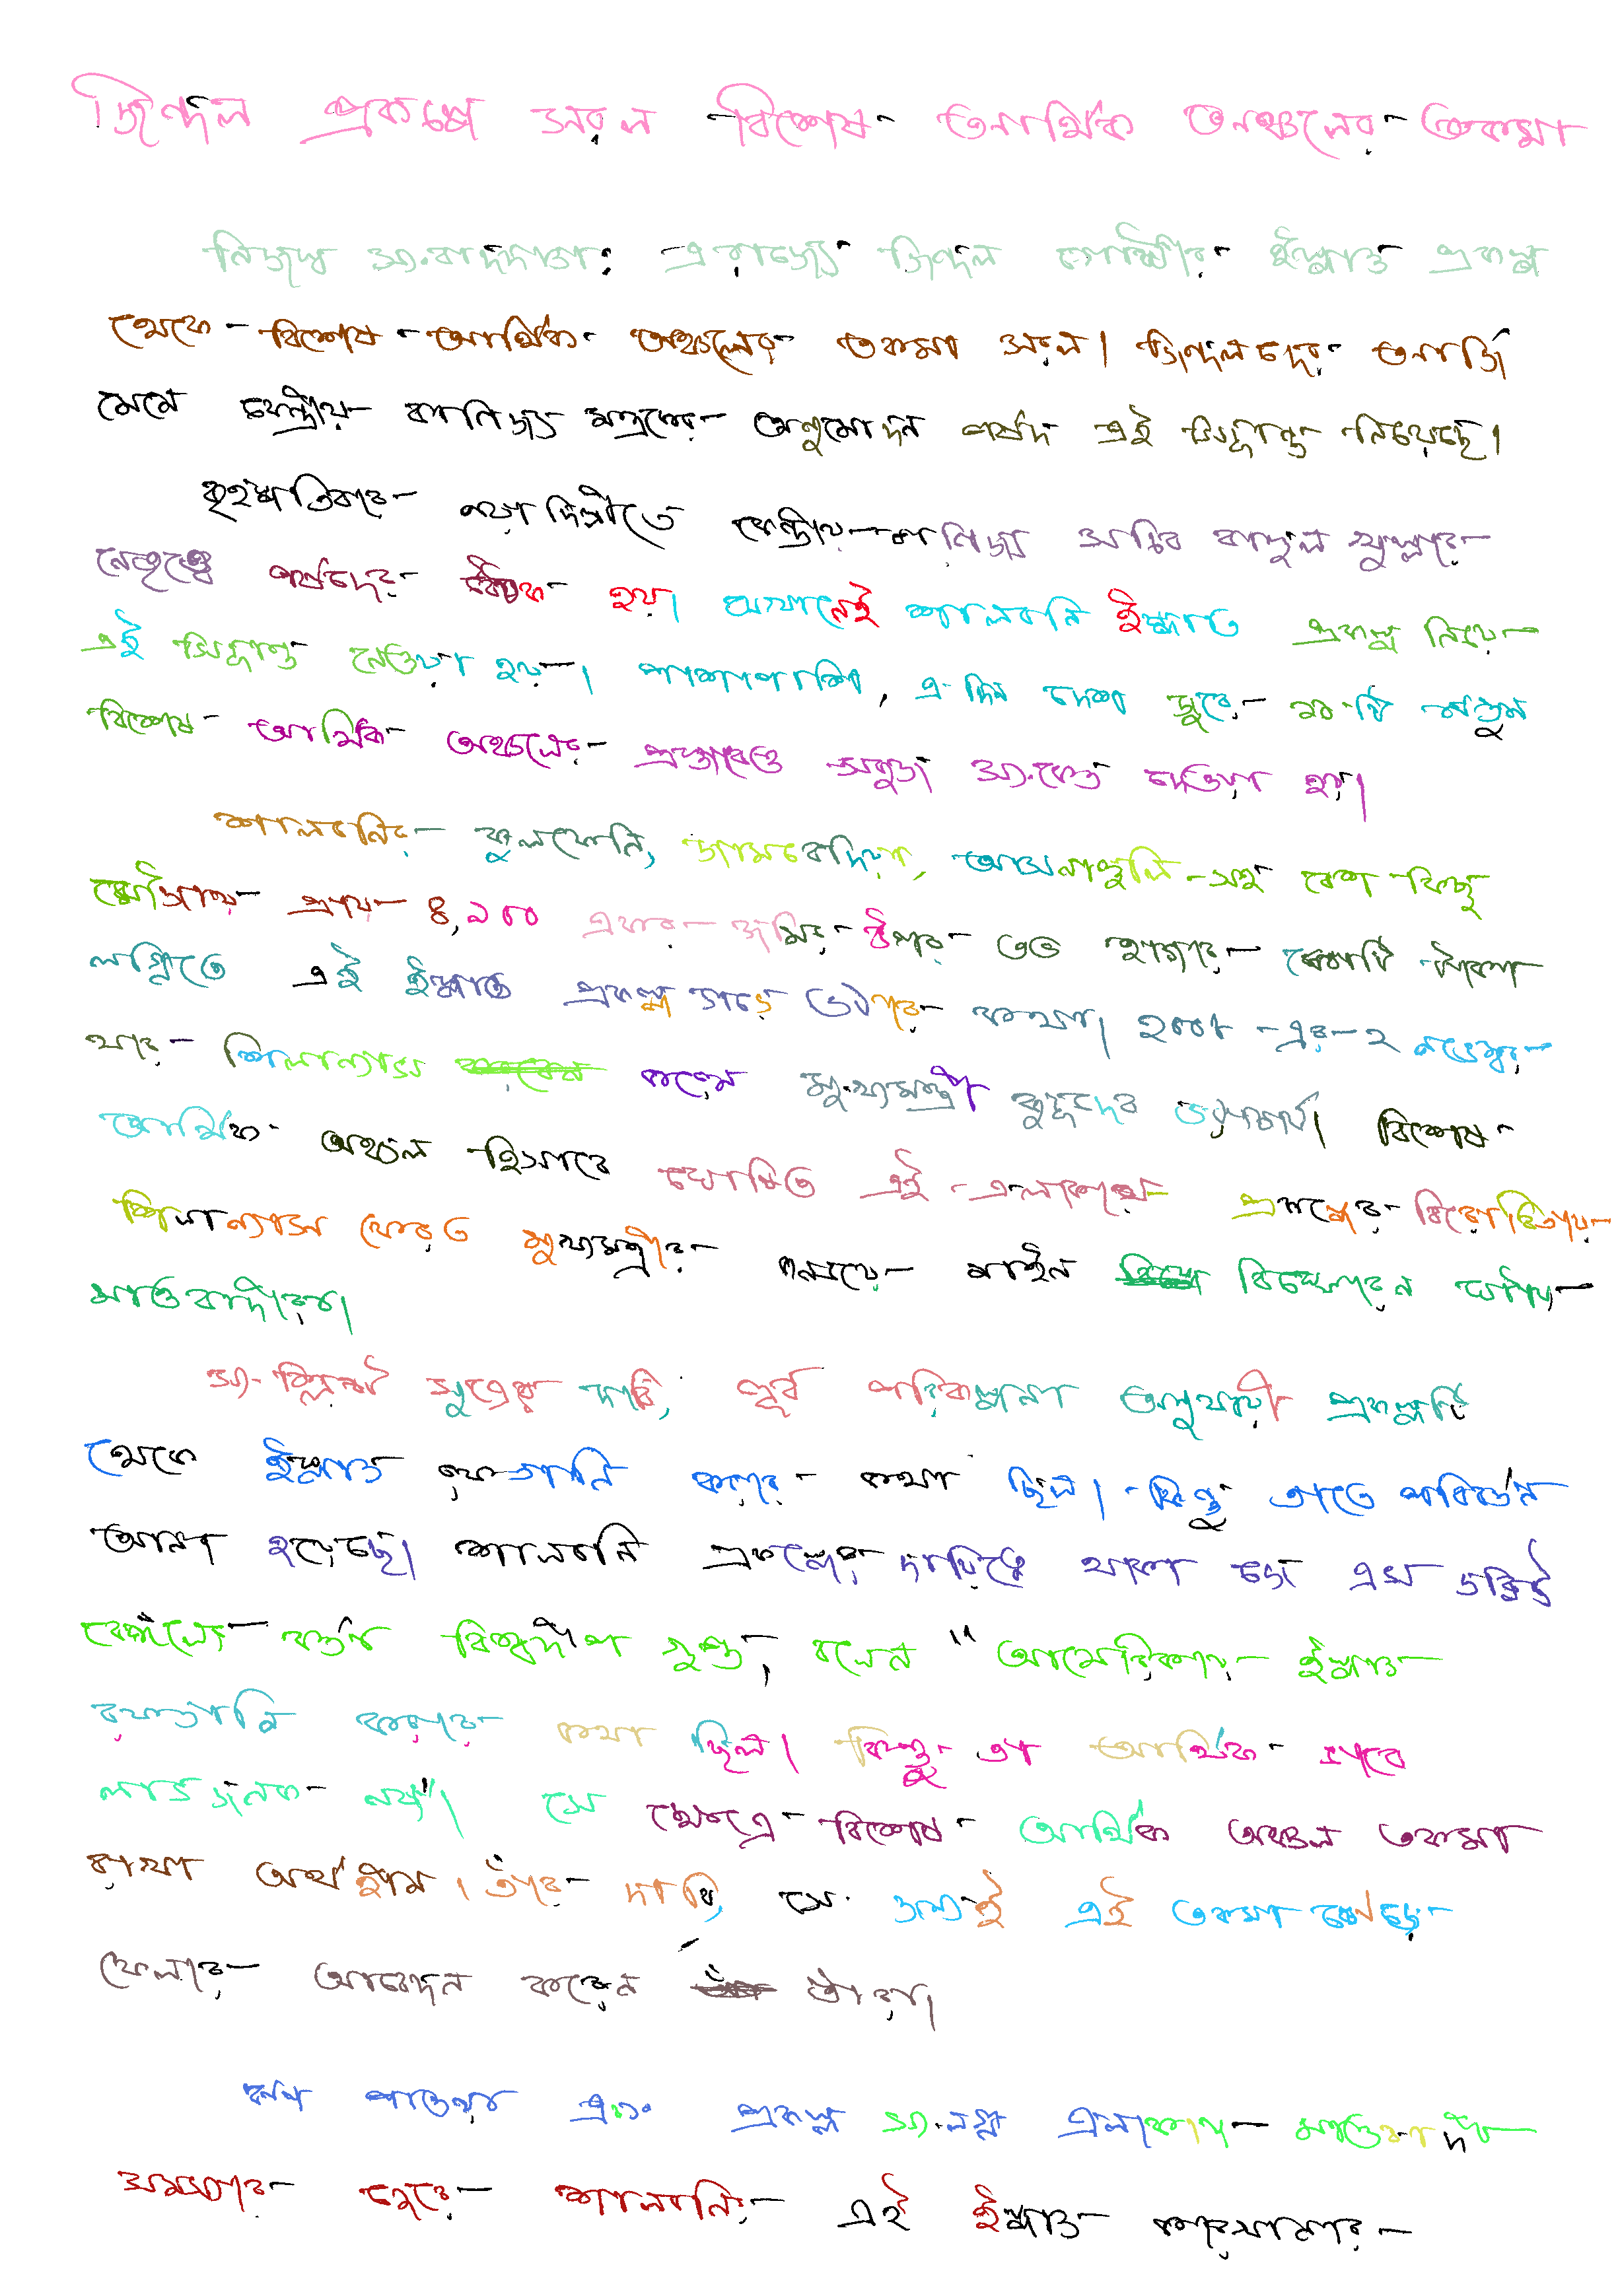 জিন্দল প্রকল্পে সরল বিশেষ আর্থিক অঞ্চলের তকমা
নিজস্ব সংবাদদাতা: এরাজ্যে জিন্দল গোষ্ঠীর ইস্পাত প্রকল্প
থেকে বিশেষ আর্থিক অঞ্চলের তকমা সরল। জিন্দলদের আর্জি
মেনে কেন্দ্রীয় বাণিজ্য মন্ত্রকের অনুমোদন পর্ষদ এই সিদ্ধান্ত নিয়েছে।
বৃহস্পতিবার নয়াদিল্লীতে কেন্দ্রীয় বানিজ্য সচিব রাহুল খুল্লারের
নেতৃত্বে পর্ষদের বৈঠক হয়। সেখানেই শালবনি ইস্পাত প্রকল্প নিয়ে
এই সিদ্ধান্ত নেওয়া হয়। পাশাপাশি, এ দিন দেশ জুড়ে নয়টি নতুন
বিশেষ আর্থিক অঞ্চলের প্রস্তাবেও সবুজ সংকেত দেওয়া হয়।
শালবনির কুলফেনি, জামবেদিয়া, আসনাশুলি-সহ বেশ কিছু
মৌজায় প্রায় ৪,৯০০ একর জমির উপর ৩৫ হাজার কোটি টাকা
লগ্নিতে এই ইস্পাত প্রকল্প গড়ে ওঠার কথা। ২০০৮-এর ২ নভেম্বর
যার শিলান্যাস করেন মুখ্যমন্ত্রী বুদ্ধদেব ভট্টাচার্য। বিশেষ
আর্থিক অঞ্চল হিসাবে ঘোষিত এই এলাকায় প্রকল্পের বিরোধিতায়
শিলান্যাস ফেরত মুখ্যমন্ত্রীর কনভয়ে মাইন বিস্ফোরণ ঘটায়
মাওবাদীরা।
সংশ্লিষ্ট সূত্রের দাবি, পূর্ব পরিকল্পনা অনুযায়ী প্রকল্পটি
থেকে ইস্পাত রফতানি করার কথা ছিল। কিন্তু তাতে পরিবর্তন
আনা হয়েছে। শালবনি প্রকল্পের দায়িত্বে থাকা জে এস ডব্লিউ
বেঙ্গলের কর্তা বিশ্বদীপ গুপ্ত, বলেন "আমেরিকায় ইস্পাত
রফতানি করার কথা ছিল। কিন্তু তা আর্থিক ভাবে
লাভজনক নয়"। সে ক্ষেত্রে বিশেষ আর্থিক অঞ্চল তকমা
রাখা অর্থহীন। তাঁর দাবি, সে জন্যই এই তকমা ঝেড়ে
ফেলার আবেদন করেন তাঁরা।
ঋণ পাওয়া এবং প্রকল্প সংলগ্ন এলাকায় মাওবাদী
সমস্যার জেরে শালবনির এই ইস্পাত কারখানার